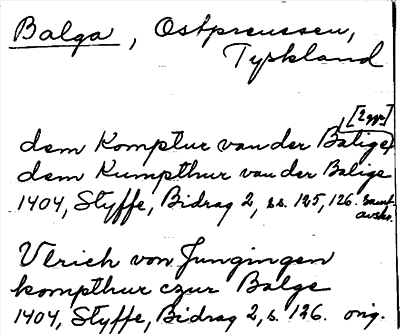 Balga, Ostpreussen,
Tyskland
[2 ggr]
dem Komptur van der Balige
dem Kumpthur van der Balige
1404, Styffe, Bidrag 2, s.s. 125, 126. samt.
avskr.
Vlrich von Jungingen
kompthur czur Balge
1404, Styffe, Bidrag 2, s. 126. orig.